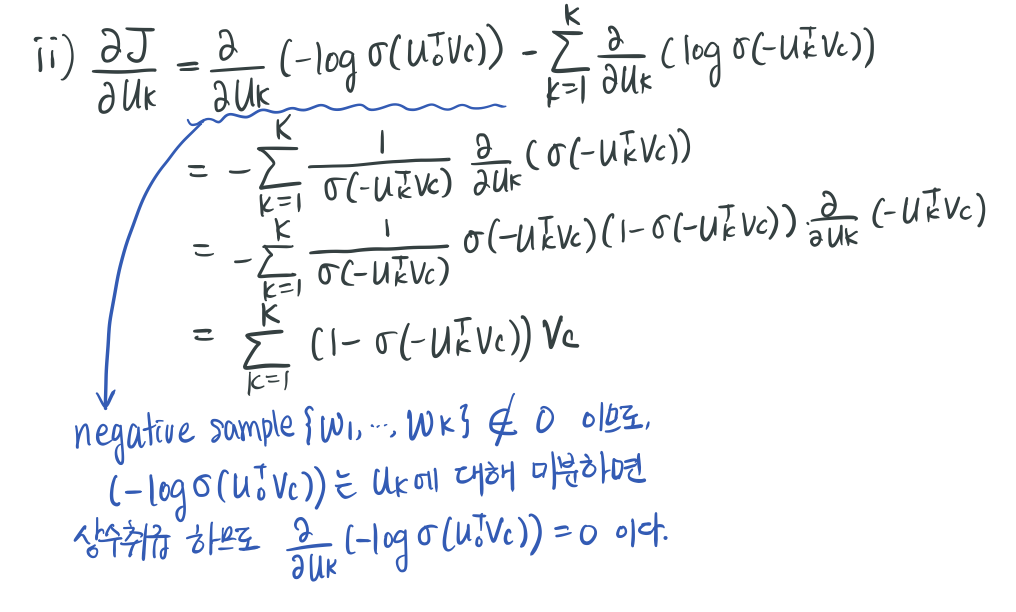 ii) ∂J/∂u_k = ∂/∂u_k (-log σ(u_o^T v_c)) - Σ_{k=1}^{K} ∂/∂u_k (log σ(-u_k^T v_c))
= -Σ_{k=1}^{K} 1/σ(-u_k^T v_c) ∂/∂u_k (σ(-u_k^T v_c))
= -Σ_{k=1}^{K} 1/σ(-u_k^T v_c) σ(-u_k^T v_c)(1-σ(-u_k^T v_c)) · ∂/∂u_k (-u_k^T v_c)
= Σ_{k=1}^{K} (1-σ(-u_k^T v_c)) v_c
negative sample {w_1, ..., w_K} ∉ O 이므로,
(-log σ(u_o^T v_c))는 u_k에 대해 미분하면
상수취급 하므로 ∂/∂u_k (-log σ(u_o^T v_c)) = 0 이다.